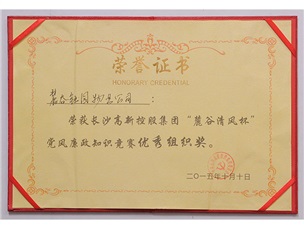 荣誉证书
HONORARY CREDENTIAL
物业公司：
荣获长沙高新控股集团“麓谷清风杯”
党风廉政知识竞赛优秀组织奖。
二〇一五年十月十日